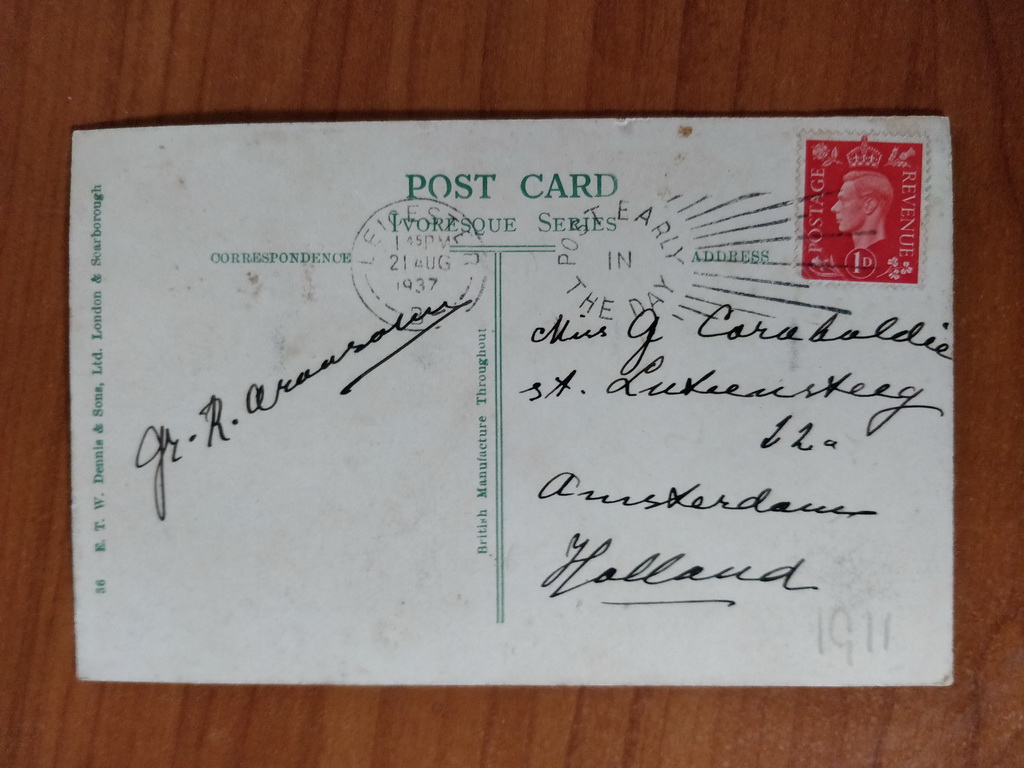 POST CARD
IVORESQUE SERIES
CORRESPONDENCE
ADDRESS
LEICESTER
1 45 PM
21 AUG
1937
POST EARLY
IN
THE DAY
POSTAGE
REVENUE
1D
Miss G Coraboldie
st. Lutiensteeg
12a
Amsterdam
Holland
Gr. R. Aronsohn
36 E. T. W. Dennis & Sons, Ltd. London & Scarborough
British Manufacture Throughout
1911